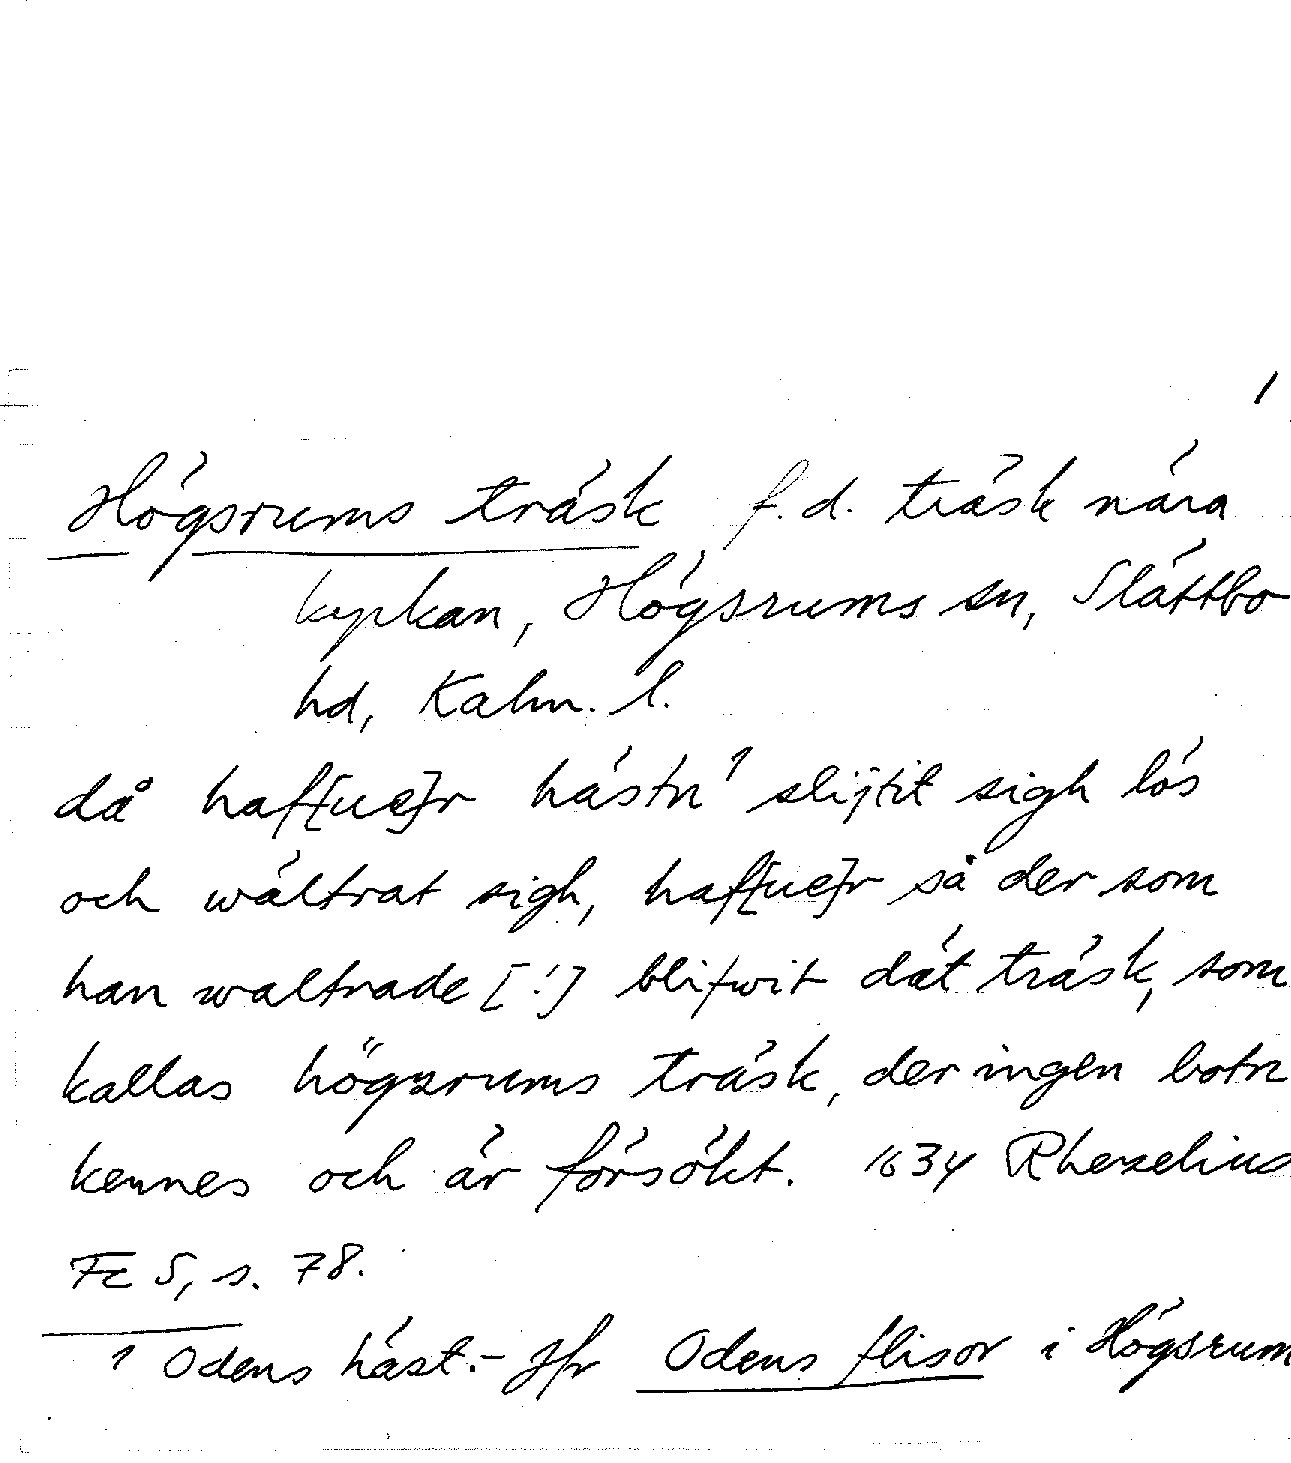 1
Högsrums träsk f.d. träsk nära
kyrkan, Högsrums sn, Slättbo
hd, Kalm. l.
då haf[ue]r hästn¹ slijtit sigh lös
och wältrat sigh, haf[ue]r så der som
han waltrade [!] blifwit dät träsk, som
kallas högzrums träsk, der ingen botn
kennes och är försökt. 1634 Rhezelius
Fc 5, s. 78.
¹ Odens häst.- Jfr Odens flisor i Högsrum